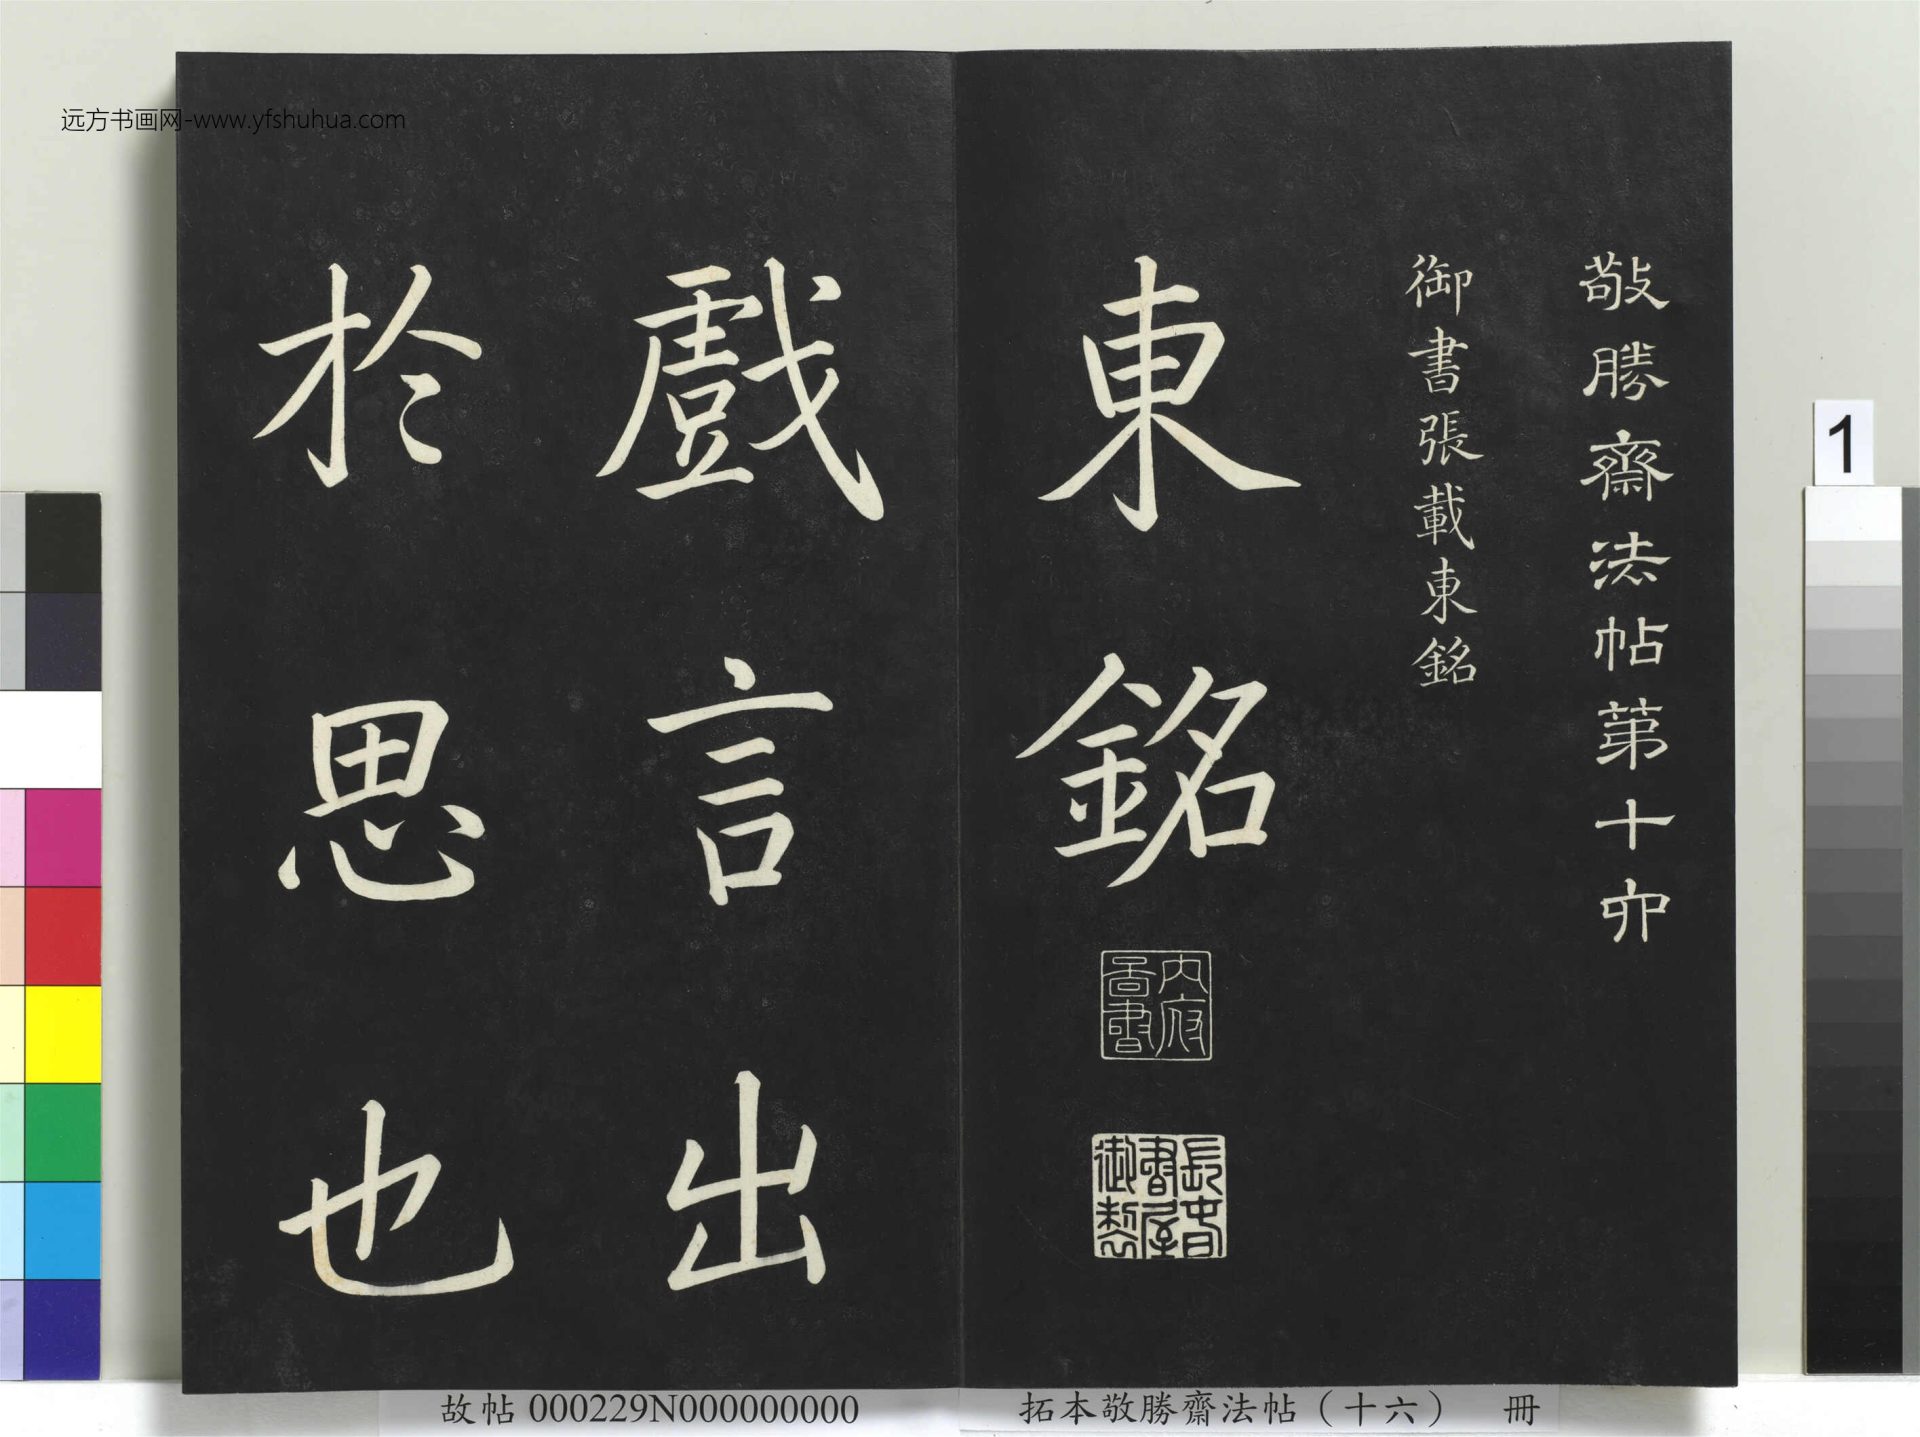 远方书画网-www.yfshuhua.com
敬勝齋法帖第十六
御書張載東銘
東銘
內府
書
長春
書屋
御製
戲言出
於思也
1
故帖 000229N000000000
拓本敬勝齋法帖（十六） 冊